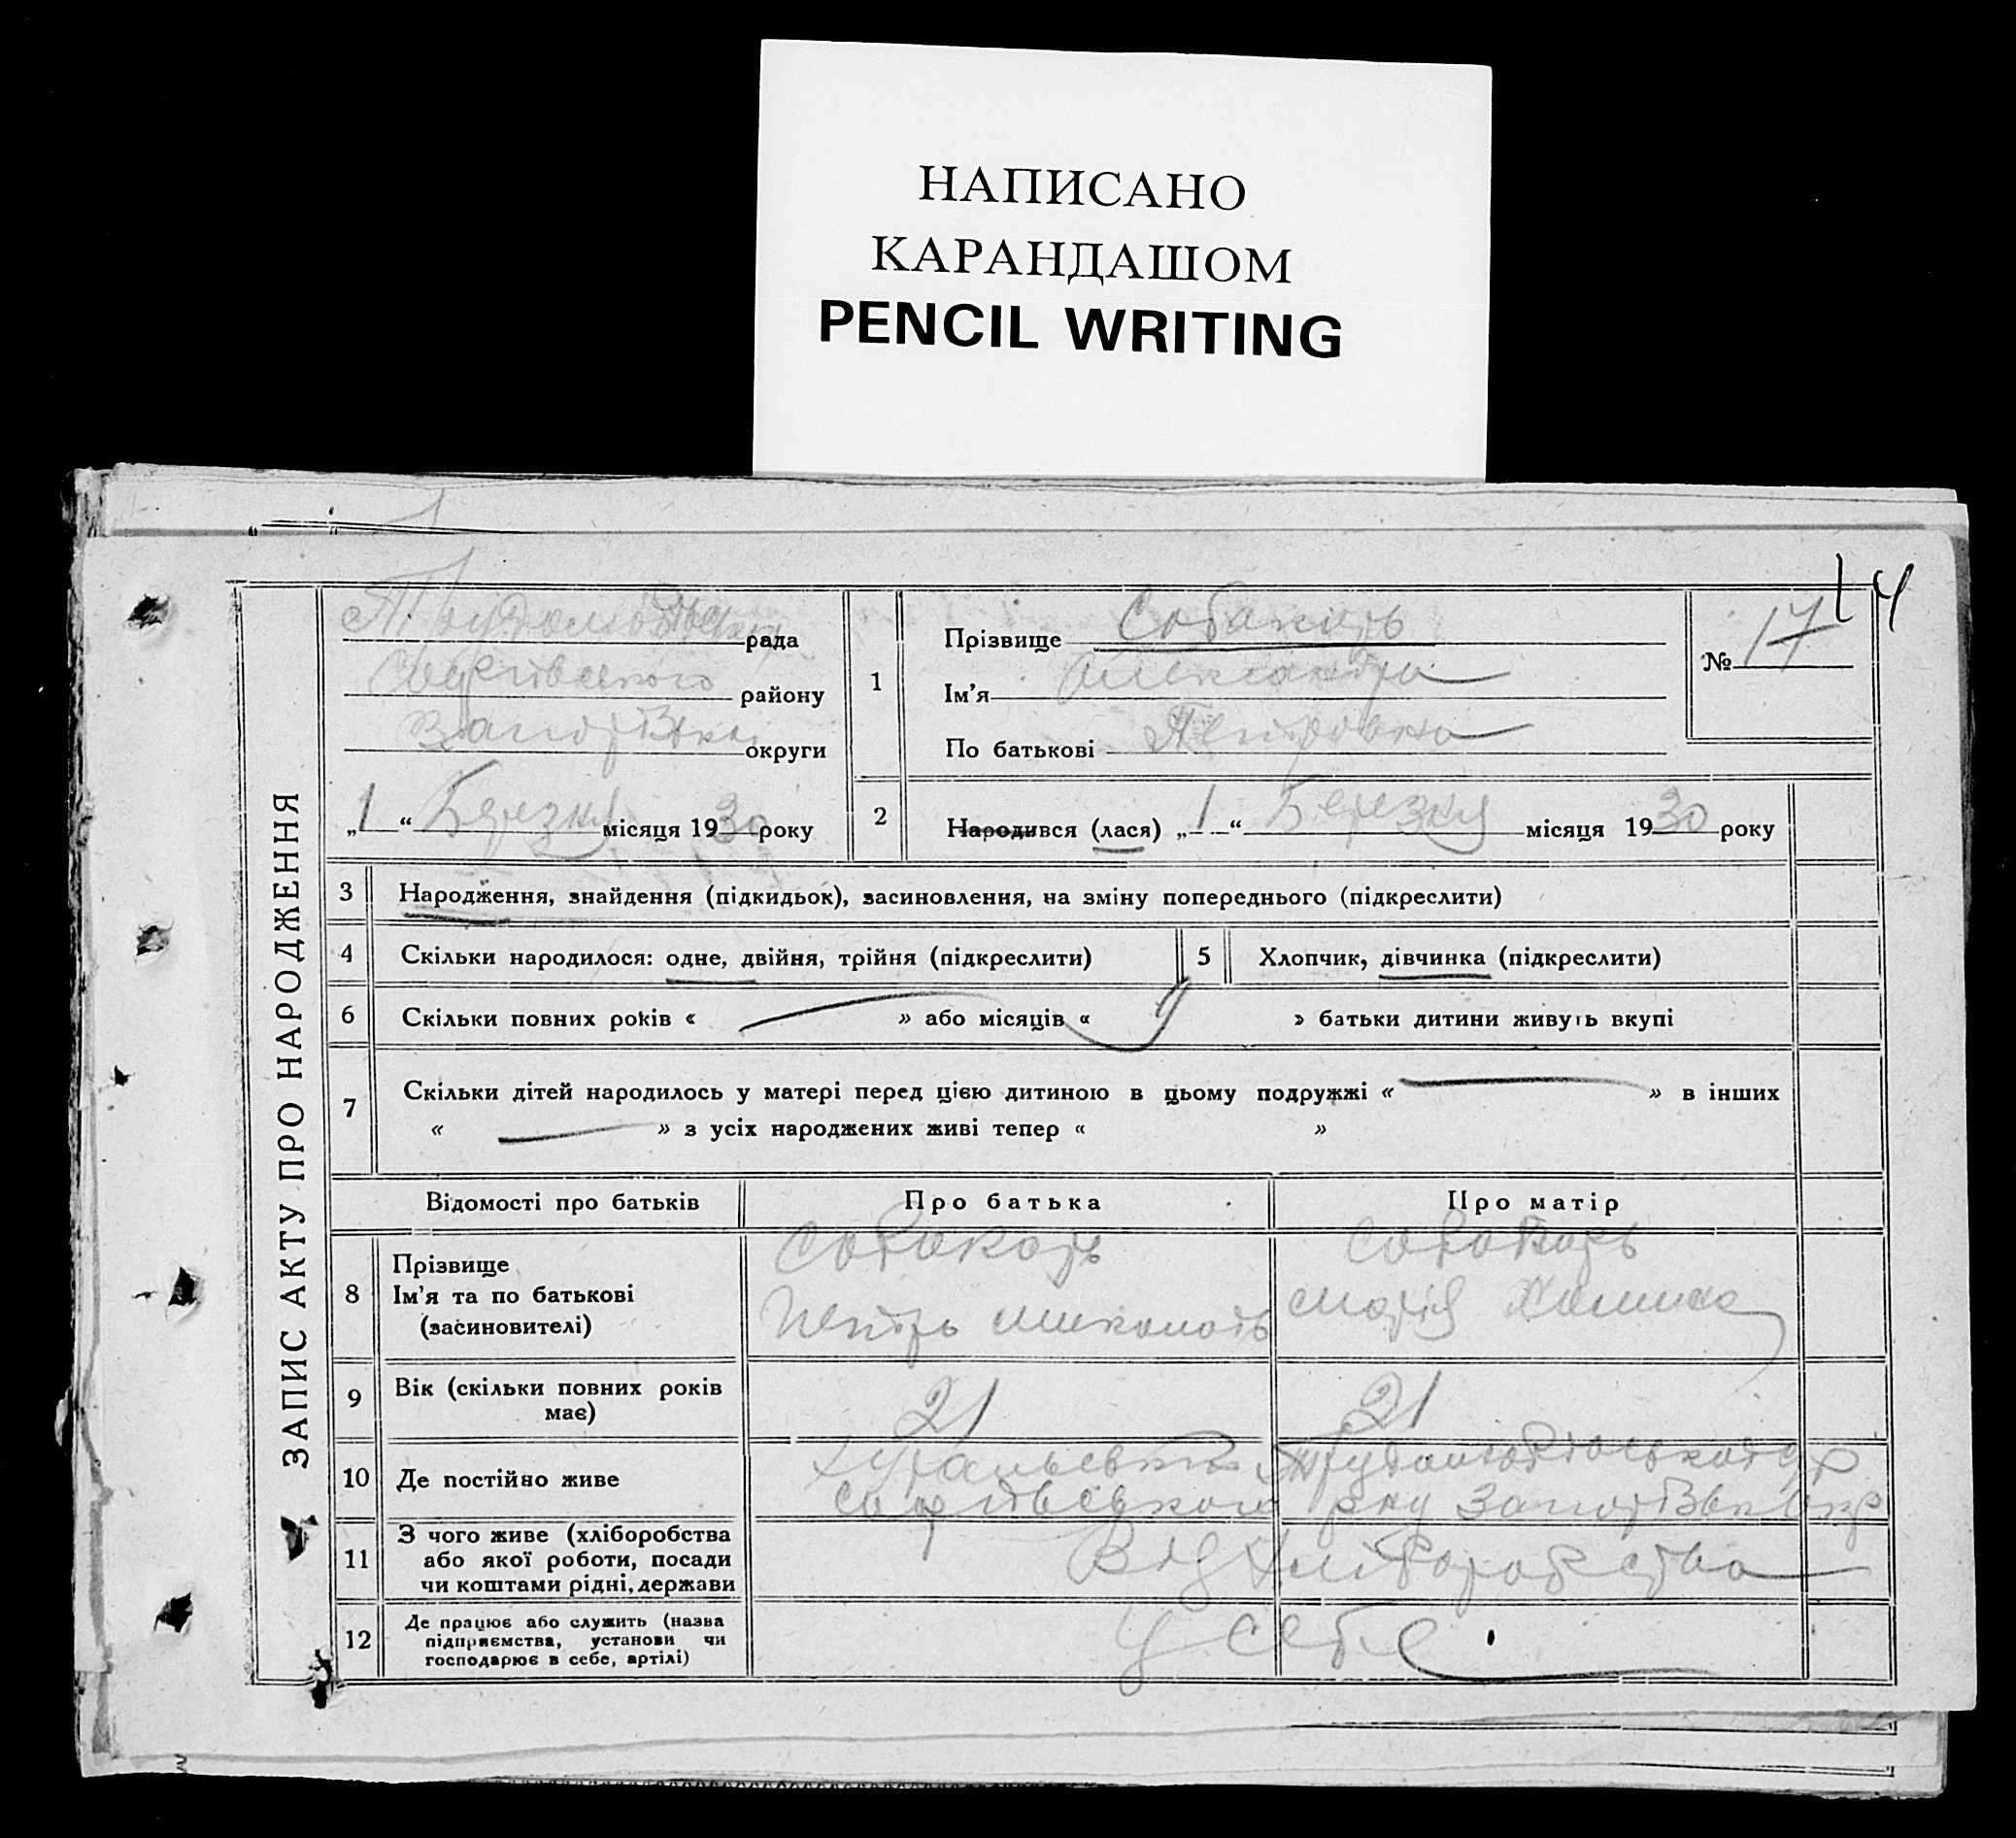 НАПИСАНО
КАРАНДАШОМ
PENCIL WRITING
14
ЗАПИС АКТУ ПРО НАРОДЖЕННЯ
рада
району
округи
„1“ Березня місяця 1930 року
1
Прізвище Собакарь
Ім'я Олександра
По батькові Петровна
№ 17
2
Народився (лася) „1“ Березня місяця 1930 року
3 Народження, знайдення (підкидьок), засиновлення, на зміну попереднього (підкреслити)
4 Скільки народилося: одне, двійня, трійня (підкреслити)
5 Хлопчик, дівчинка (підкреслити)
6 Скільки повних років « » або місяців « 9 » батьки дитини живуть вкупі
7 Скільки дітей народилось у матері перед цією дитиною в цьому подружжі « — » в інших
« — » з усіх народжених живі тепер « »
Відомості про батьків Про батька Про матір
8 Прізвище
Ім'я та по батькові
(засиновителі)
Собакарь
Петрь
Собакарь
Марія
9 Вік (скільки повних років
має)
21 21
10 Де постійно живе
11 З чого живе (хліборобства
або якої роботи, посади
чи коштами рідні, держави
Від хліборобства
12 Де працює або служить (назва
підприємства, установи чи
господарює в себе, артілі)
У себе